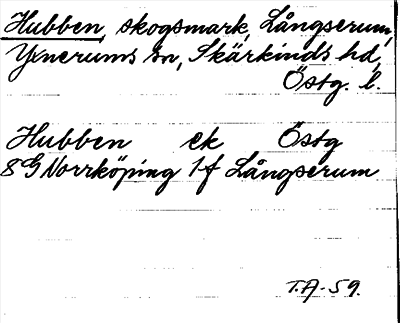 Hubben, skogsmark, Långserum,
Yxnerums sn, Skärkinds hd,
Östg. l.
Hubben ek Östg
8G Norrköping 1f Långserum
T.A-59.